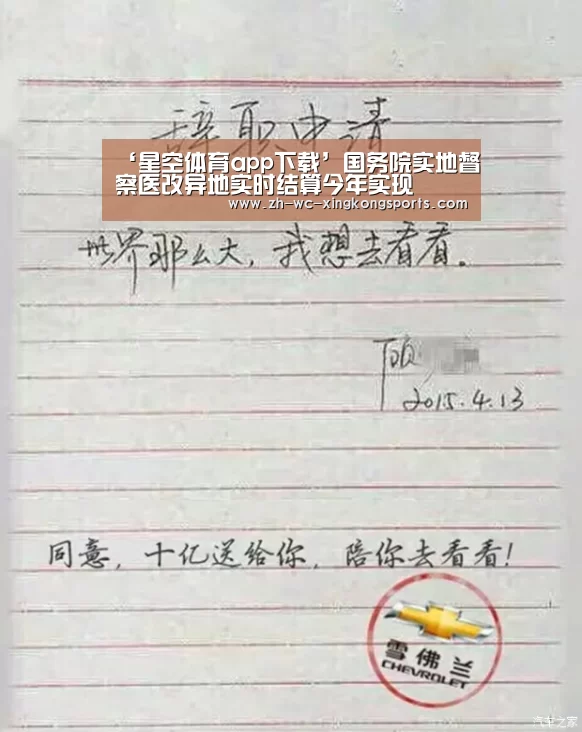 辞职申请
‘星空体育app下载’国务院实地督
察医改异地实时结算今年实现
www.zh-wc-xingkongsports.com
世界那么大，我想去看看。
顾
2015.4.13
同意，十亿送给你，陪你去看看！
雪佛兰
CHEVROLET
汽车之家